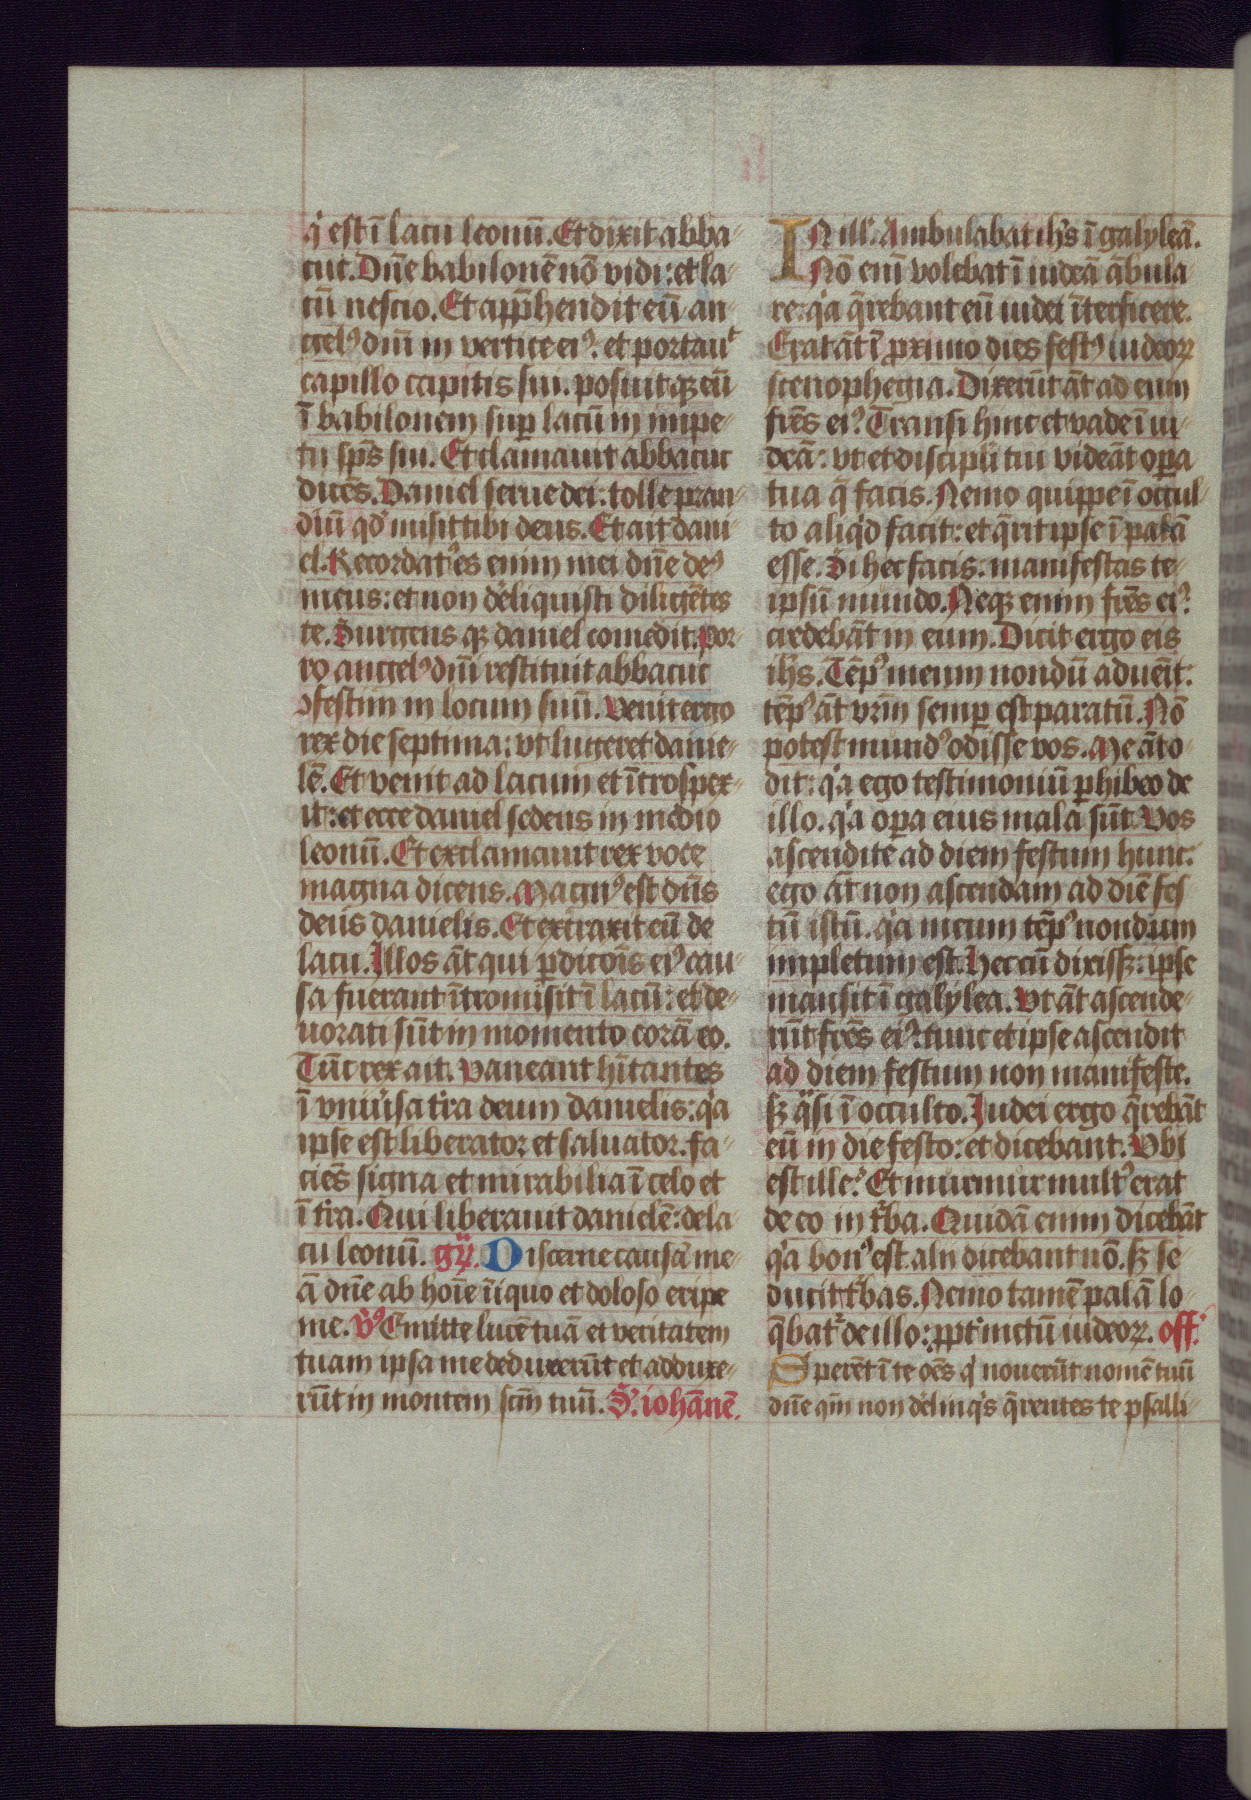 qͥ est ī lacu leonū. Et dixit abba-
cuc. Dn̄e babilonē nō vidi: et la-
cū nescio. Et app̄hendit eū an-
gelꝰ dn̄i in vertice eiꝰ. et portauͭ
capillo capitis sui. posuitqꝫ eū
ī babilonem suꝑ lacū in impe-
tu sp̄s sui. Et clamauit abbacuc
dicēs. Daniel serue dei: tolle pran-
diū qd̛ misit tibi deus. Et ait dani-
el. Recordatꝰ es enim mei dn̄e deꝰ
meus: et non de̛liquisti diligētes
te. Surgens qꝫ daniel comedit. Por-
ro angelꝰ dn̄i restituit abbacuc
ꝯfestim in locum suū. Venit ergo
rex die septima: vt lugeret danie-
lē. Et venit ad lacum et ītrospex-
it: et ecce daniel sedens in medio
leonū. Et exclamauit rex voce
magna dicens. Magnꝰ est dn̄s
deus danielis. Et extraxit eū de
lacu. Illos āt qui ꝑdicōis eiꝰ cau-
sa fuerant ītromisit ī lacū: et de-
uorati sūt in momento corā eo.
Tūc rex ait. Paueant hītantes
ī vniūsa t̄ra deum danielis: qͥa
ipse est liberator et saluator. fa-
ciēs signa et mirabilia ī celo et
ī t̄ra. Qui liberauit danielē: de la-
cu leonū. gͬꝝ. Discerne causā me-
ā dn̄e ab hoīe īiquo et doloso eripe
me. V̄ꝰ Emitte lucē tuā et veritatem
tuam ipsa me deduxerūt et adduxe-
rūt in montem scm̄ tuū. S̄. iohānē.
IN ill̛. Ambulabat ih̄s ī galyleā.
Nō enī volebat ī iudeā ābula
re: qͥa q̄rebant eū iudei īterficere.
Erat āt ī ꝓximo dies festꝰ iudeoꝝ
scenophegia. Dixerūt āt ad eum
fr̄es eiꝰ. Transi hinc et vade ī iu-
deā: vt et discipl̄i tui videāt oꝑa
tua q̄ facis. Nemo quippe ī occul-
to aliqͥd facit: et q̄rit ipse ī palā
esse. Si hec facis. manifestas te-
ipsū mundo. Neqꝫ enim fr̄es eiꝰ.
credebāt in eum. Dicit ergo eis
ih̄s. Tēpꝰ meum nondū aduēit:
tēpꝰ āt vr̄m semꝑ est paratū. Nō
potest mundꝰ odisse vos. Me āt o-
dit: qͥa ego testimoniū ꝑhibeo de
illo. qͥa oꝑa eius mala sūt. Vos
ascendite ad diem festum hunc.
ego āt non ascendam ad diē fes
tū istū. qͥa meum tēpꝰ nondum
impletum est. Hec cū dixissꝫ. ipse
mansit ī galylea. Vt āt ascende-
rūt fr̄es eiꝰ. tunc et ipse ascendit
ad diem festum non manifeste.
sꝫ qͣsi ī occulto. Iudei ergo q̄rebāt
eū in die festo: et dicebant. Vbi
est ille? Et murmur multꝰ erat
de eo in tͬba. Quidā enim dicebāt
qͥa bonꝰ est. alii dicebant nō. sꝫ se
ducit tͬbas. Nemo tamē palā lo-
q̄batͬ de illo: ꝓpt̛ metū iudeoꝝ. off̄.
Sperēt ī te oēs qͥ nouerūt nomē tuū
dn̄e qm̄ non de̛linqͥs q̄rentes te psalli-